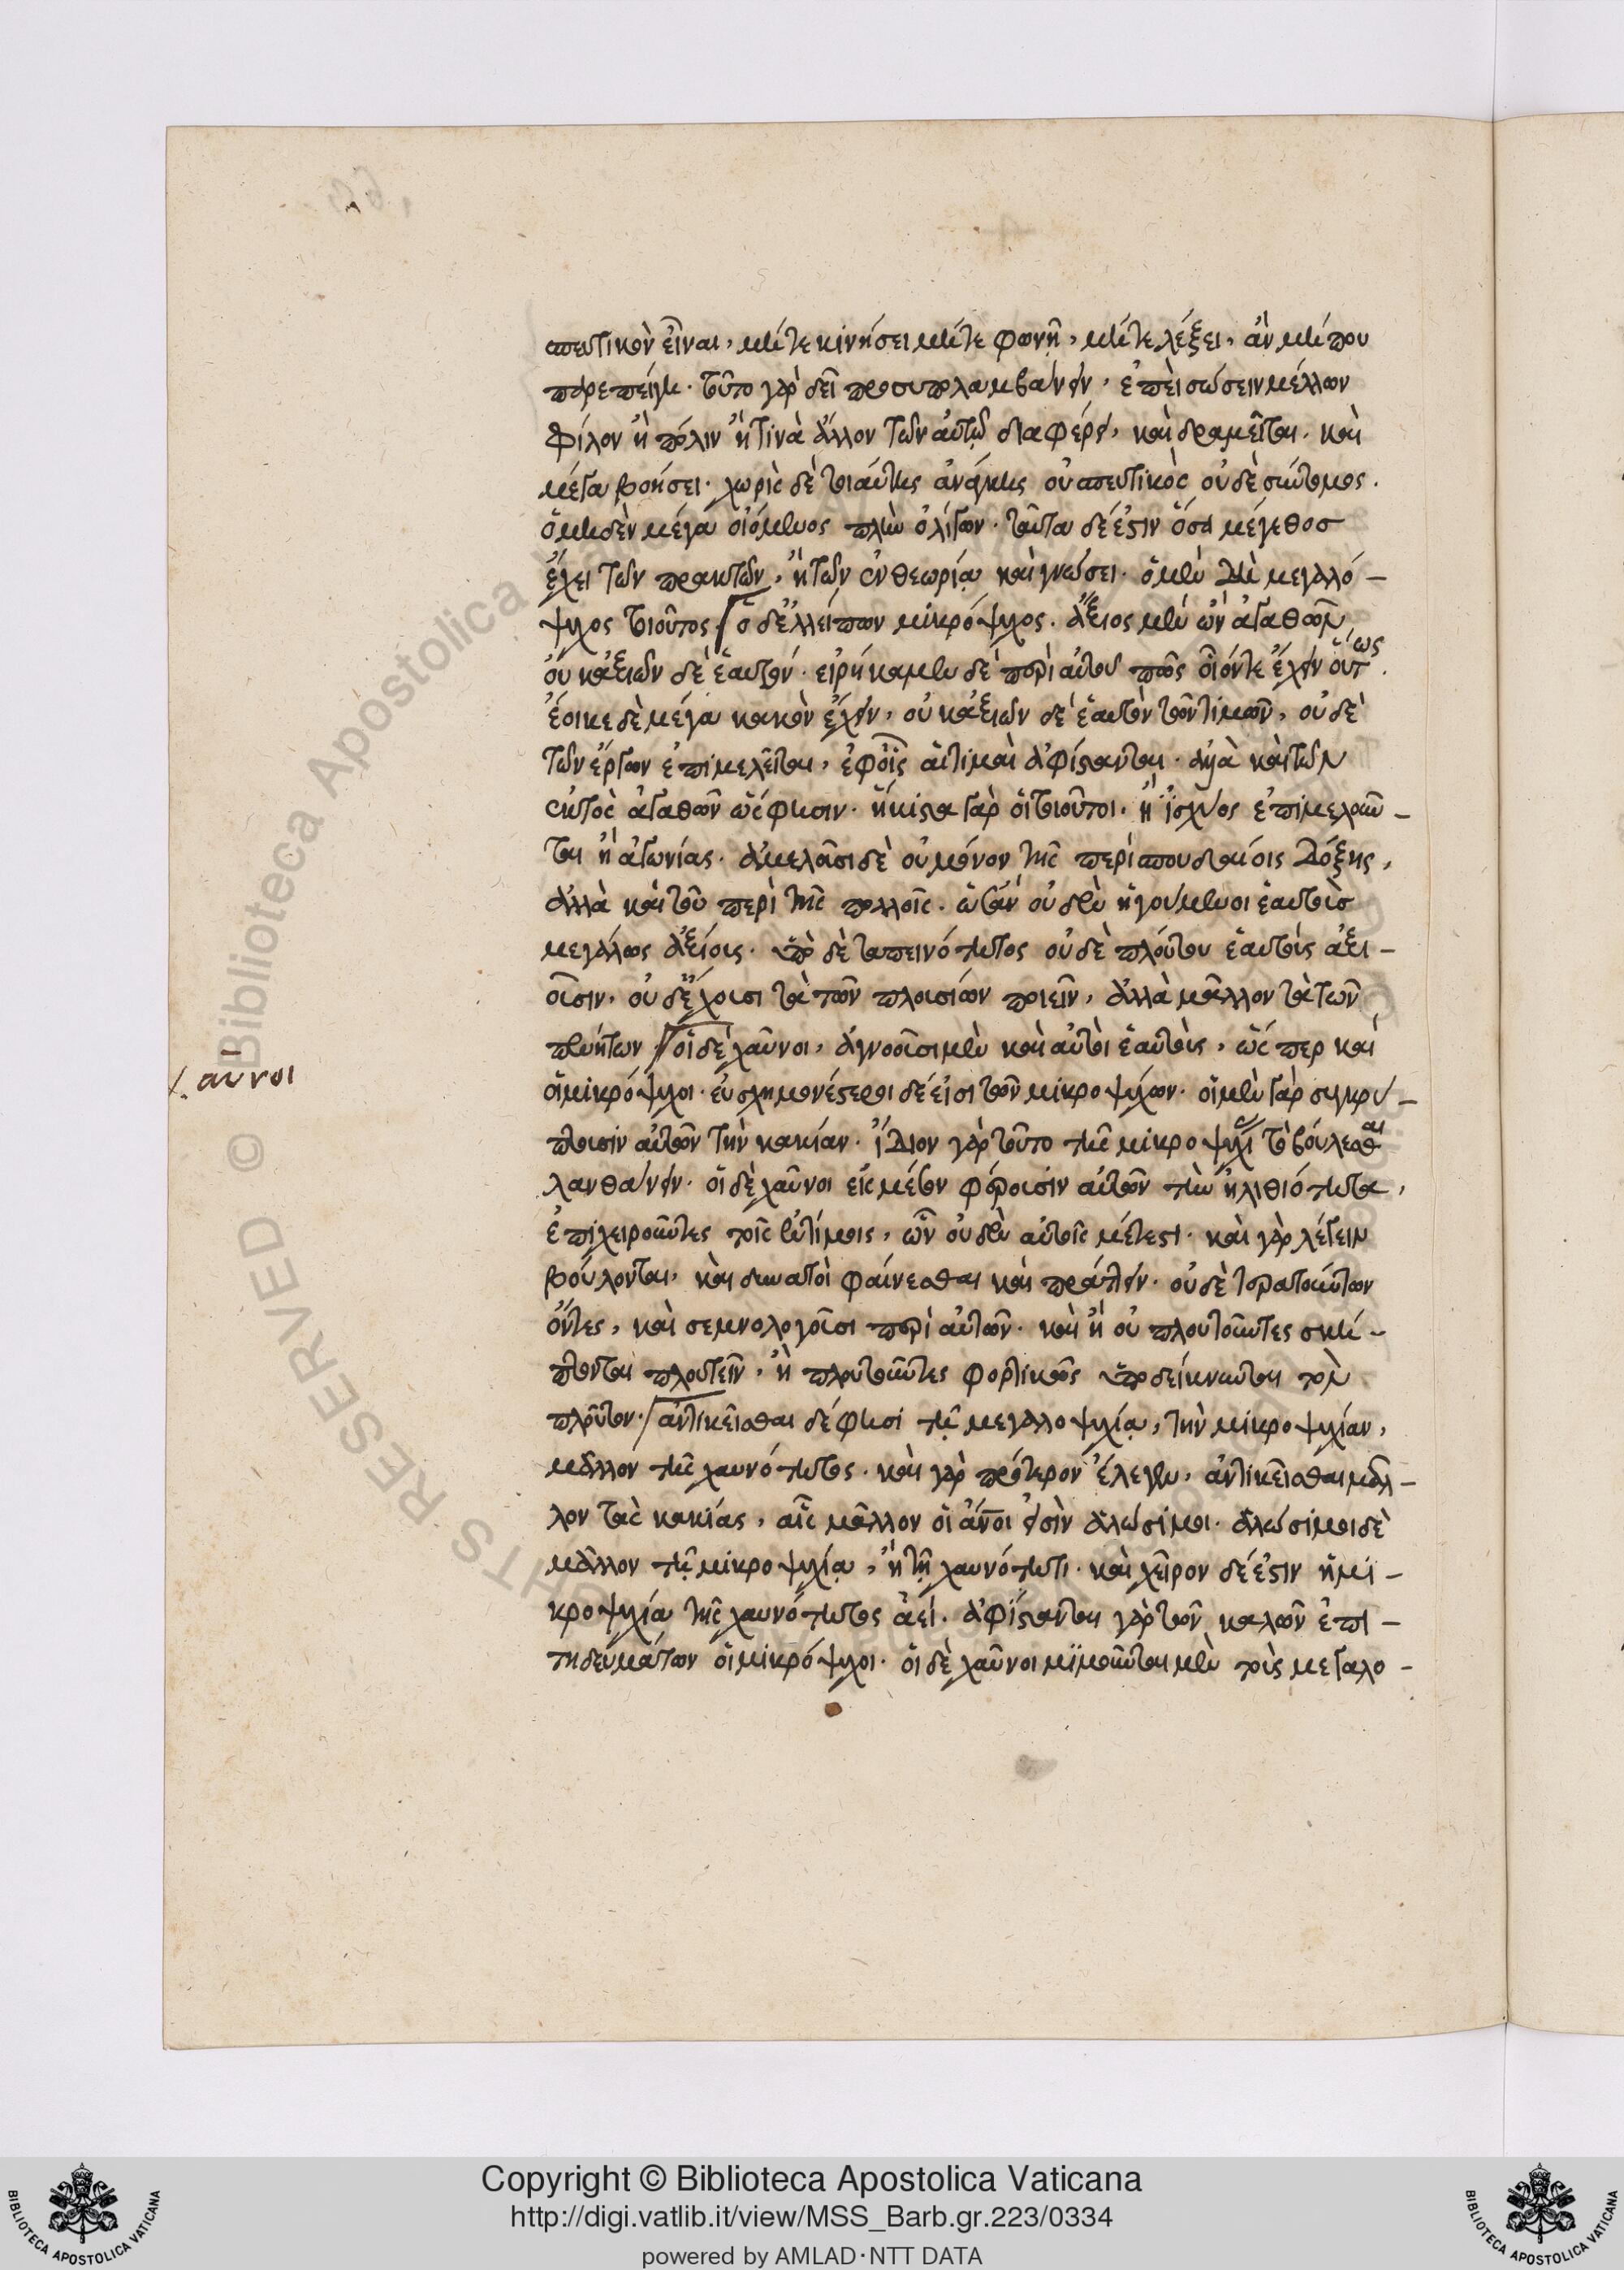 σπευστικὸν εἶναι, μήτε κινήσει μήτε φωνῇ, μήτε λέξει, ἂν μή που
παρεπείγῃ. τοῦτο γὰρ δεῖ προσυπολαμβάνειν. ἐπεὶ σώσειν μέλλων
φίλον ἢ πόλιν ἤ τινα ἄλλον τῶν αὐτῷ διαφέρει, καὶ δραμεῖται. καὶ
μέγα βοήσει. χωρὶς δὲ τοιαύτης ἀνάγκης οὐ σπευστικὸς οὐδὲ σύντομος.
ὁ μηδὲν μέγα οἰόμενος πλὴν ὀλίγων. ταῦτα δέ ἐστιν ὅσα μέγεθος
ἔχει τῶν πρακτῶν, ἢ τῶν ἐν θεωρίᾳ καὶ γνώσει. ὁ μὲν δὴ μεγαλό-
ψυχος τοιοῦτος. ὁ δ' ἐλλείπων μικρόψυχος. ἄξιος μὲν ὢν ἀγαθῶν
οὐκ ἀξιῶν δὲ ἑαυτόν. εἰρήκαμεν δὲ περὶ αὐτοῦ πῶς οἷόν τε ἔχειν οὕτως.
ἔοικε δὲ μέγα κακὸν ἔχειν, οὐκ ἀξιῶν δὲ ἑαυτὸν τῶν τιμῶν, οὐδὲ
τῶν ἔργων ἐπιμελεῖται, ἐφ' οἷς αἱ τιμαὶ ἀφίστανται. ἀλλὰ καὶ τῶν
ἐκτὸς ἀγαθῶν ὥς φησιν. ἥκιστα γὰρ οἱ τοιοῦτοι. ἢ ἰσχύος ἐπιμελοῦν-
ται ἢ ἀγωνίας. ἀμελοῦσι δὲ οὐ μόνον τῆς περὶ σπουδαίοις δόξης,
ἀλλὰ καὶ τοῦ περὶ τῆς πολλοῖς. οὐδὲν ἡγούμενοι ἑαυτοὺς
μεγάλως ἀξίους. ὑπὸ δὲ ταπεινότητος οὐδὲ πλούτου ἑαυτοὺς ἀξι-
οῦσιν. οὐδ' ἔχουσι τὰ τῶν πλουσίων ποιεῖν, ἀλλὰ μᾶλλον τὰ τῶν
πενήτων. οἱ δὲ χαῦνοι, ἀγνοοῦσι μὲν καὶ αὐτοὶ ἑαυτοὺς, ὥσπερ καὶ
χαῦνοι
οἱ μικρόψυχοι. εὐσχημονέστεροι δέ εἰσι τῶν μικροψύχων. οἱ μὲν γὰρ συγκρύ-
πτουσιν αὐτῶν τὴν κακίαν. ἴδιον γὰρ τοῦτο τῆς μικροψυχίας τὸ βούλεσθαι
λανθάνειν. οἱ δὲ χαῦνοι εἰς μέσον φέρουσιν αὐτῶν τὴν ἠλιθιότητα,
ἐπιχειροῦντες τοῖς ἐντίμοις, ὧν οὐδὲν αὐτοῖς μέτεστι. καὶ γὰρ λέγειν
βούλονται, καὶ δυνατοὶ φαίνεσθαι καὶ πράττειν. οὐδὲ
ὄντες, καὶ σεμνολογοῦσι περὶ αὐτῶν. καὶ ἢ οὐ πλουτοῦντες σκή-
πτονται πλουτεῖν, ἢ πλουτοῦντες φορτικῶς ὑποδείκνυνται τὸν
πλοῦτον. ἀντικεῖσθαι δέ φησι τῇ μεγαλοψυχίᾳ, τὴν μικροψυχίαν,
μᾶλλον τῆς χαυνότητος. καὶ γὰρ πρότερον ἔλεγεν, ἀντικεῖσθαι μᾶλ-
λον τὰς κακίας, αἷς μᾶλλον οἱ ἄνοι εἰσὶν ἁλώσιμοι. ἁλώσιμοι δὲ
μᾶλλον τῇ μικροψυχίᾳ, ἢ τῇ χαυνότητι. καὶ χεῖρον δέ ἐστιν ἡ μι-
κροψυχία τῆς χαυνότητος ἀεί. ἀφίστανται γὰρ τῶν καλῶν ἐπι-
τηδευμάτων οἱ μικρόψυχοι. οἱ δὲ χαῦνοι μιμοῦνται μὲν τοὺς μεγαλο-
© Biblioteca Apostolica Vaticana
RIGHTS RESERVED
Copyright © Biblioteca Apostolica Vaticana
http://digi.vatlib.it/view/MSS_Barb.gr.223/0334
powered by AMLAD·NTT DATA
BIBLIOTECA APOSTOLICA VATICANA
BIBLIOTECA APOSTOLICA VATICANA